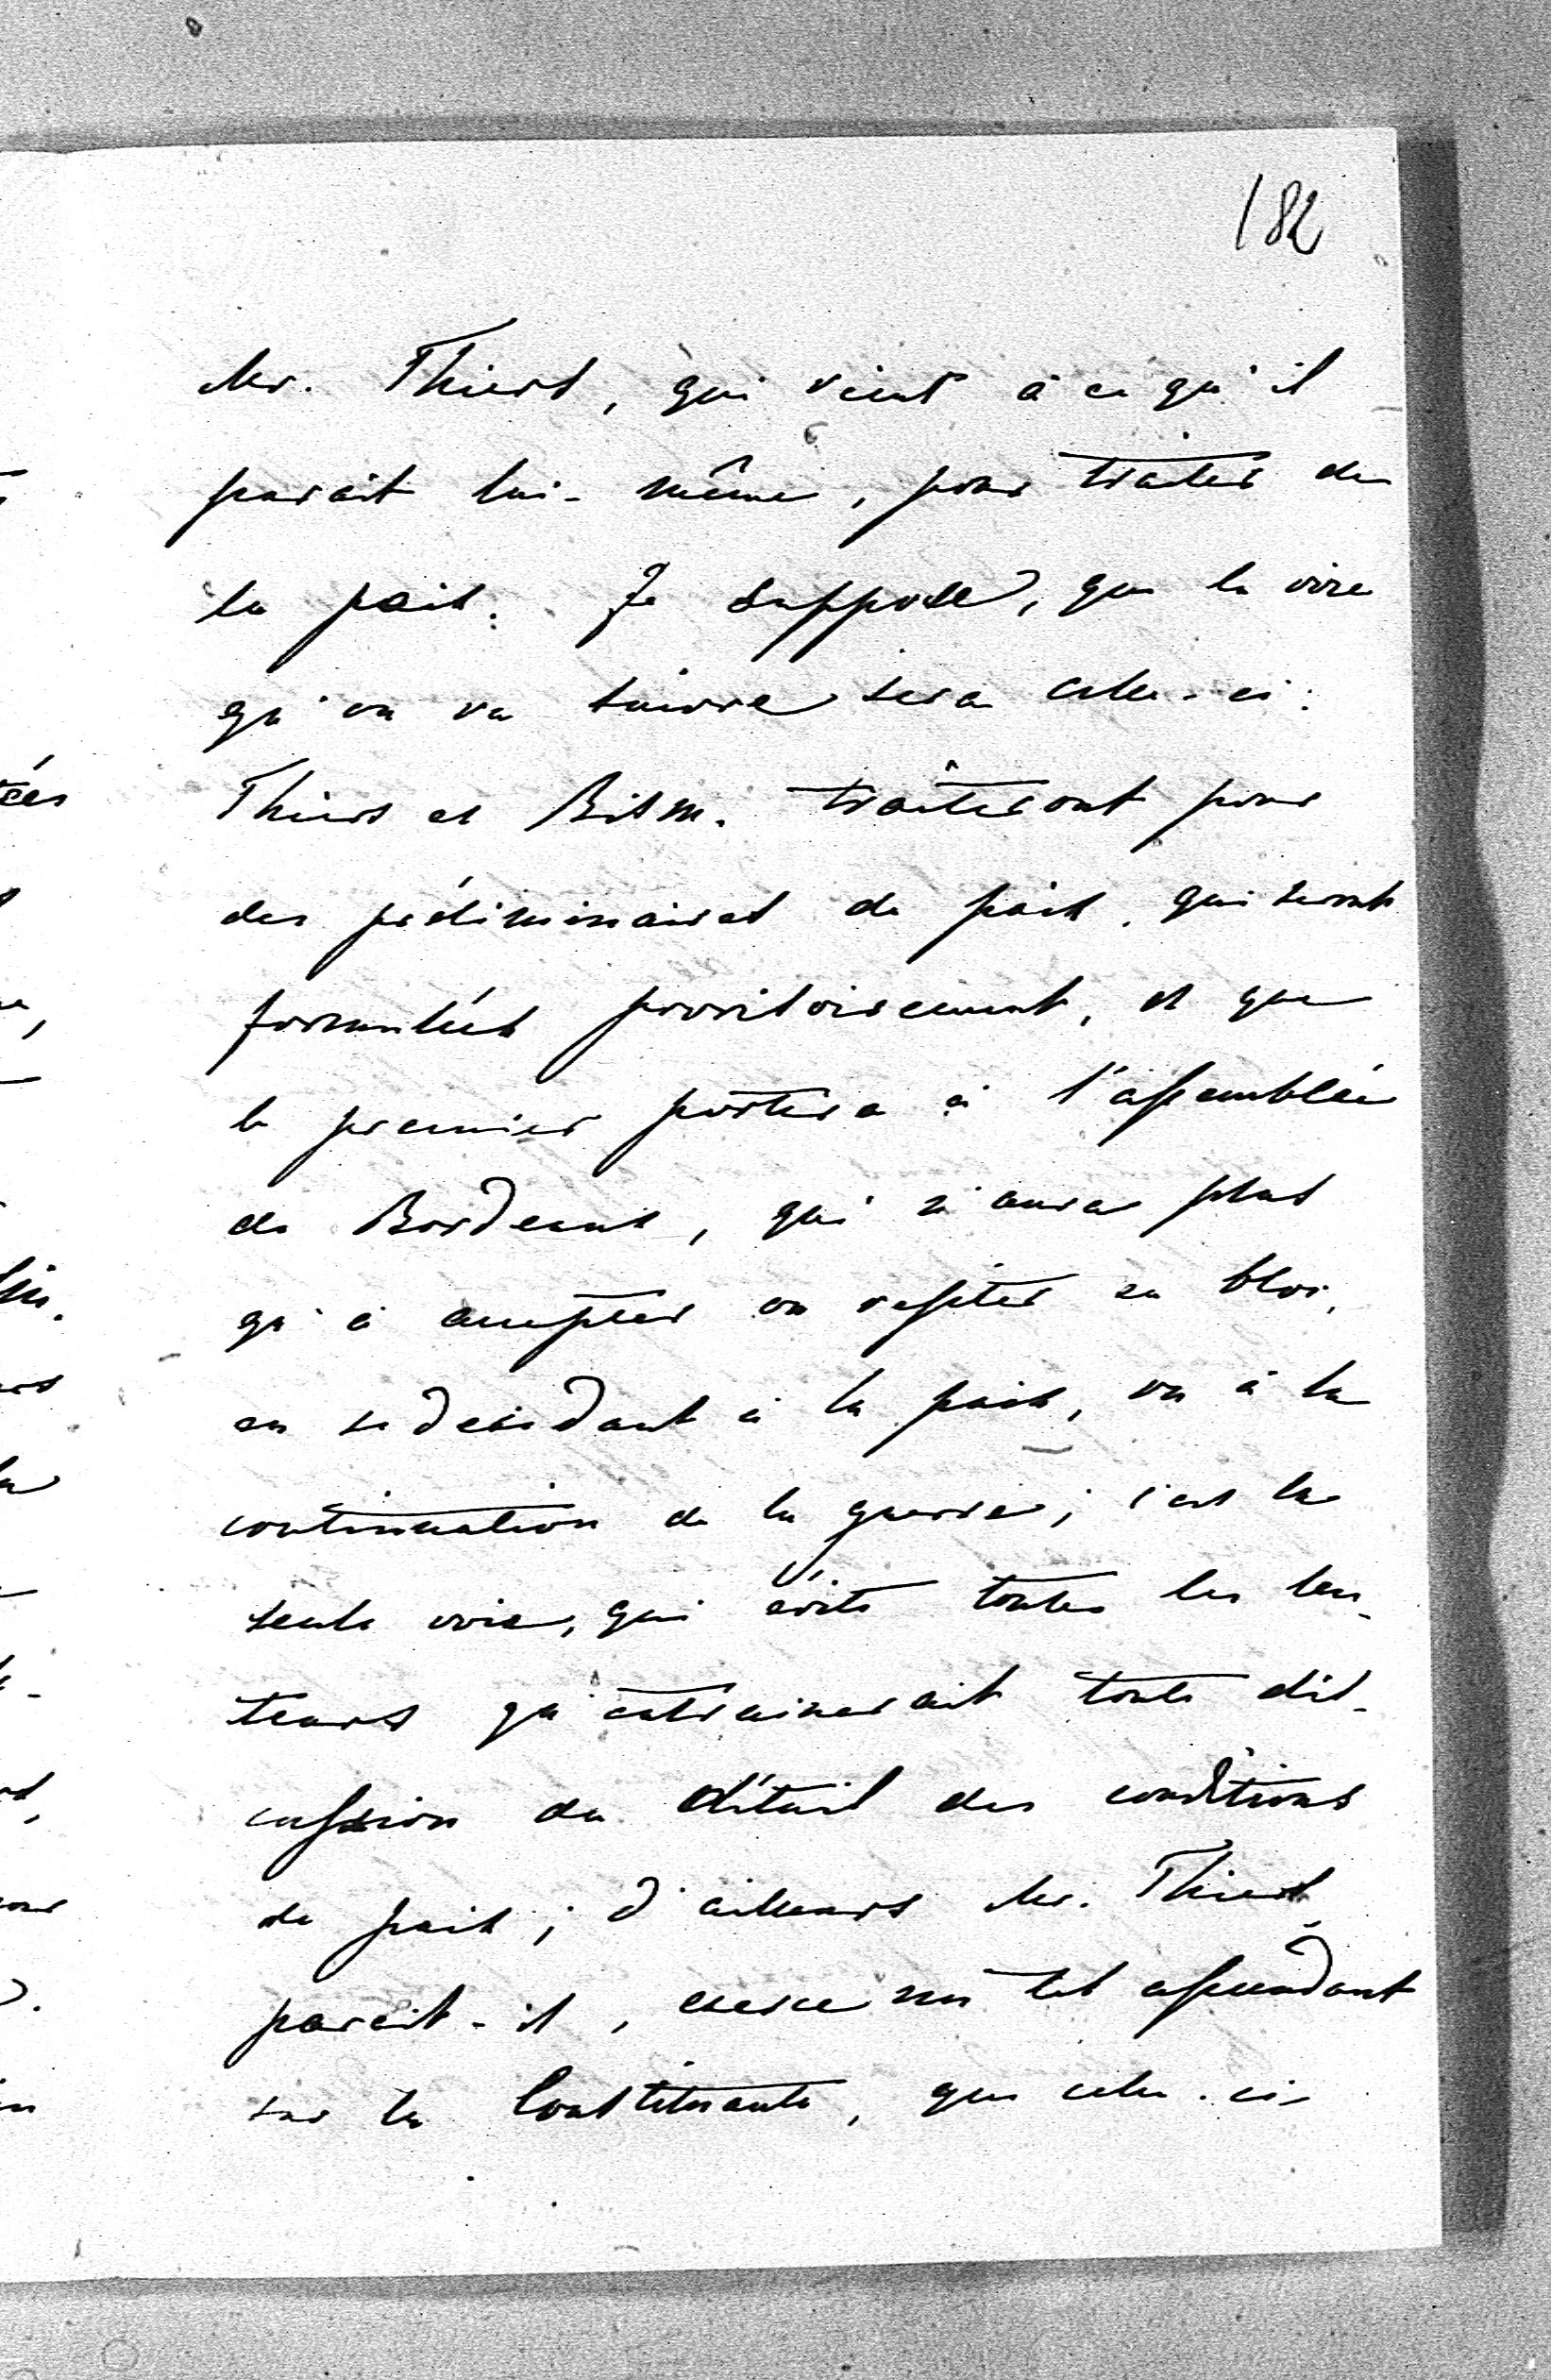 182
Mr. Thiers, qui vient à ce qu'il
parait lui-même, pour traiter de
la paix. Je suppose, que la voie
qu'on va suivre sera celle-ci:
Thiers et Bism. traîteront pour
des préliminaires de paix, qui seront
formulés provisoirement, et que
le premier portera à l'assemblée
de Bordeaux, qui n'aura plus
qu'à accepter ou rejeter en bloc,
en se decidant à la paix, ou à la
continuation de la guerre; c'est la
seule voie, qui évite toutes les len-
teurs qu'entrainerait toute dis-
cussion du détail des conditions
de paix; d'ailleurs Mr. Thiers
parait-il, exerce un tel ascendant
sur la Constituante, que celle-ci